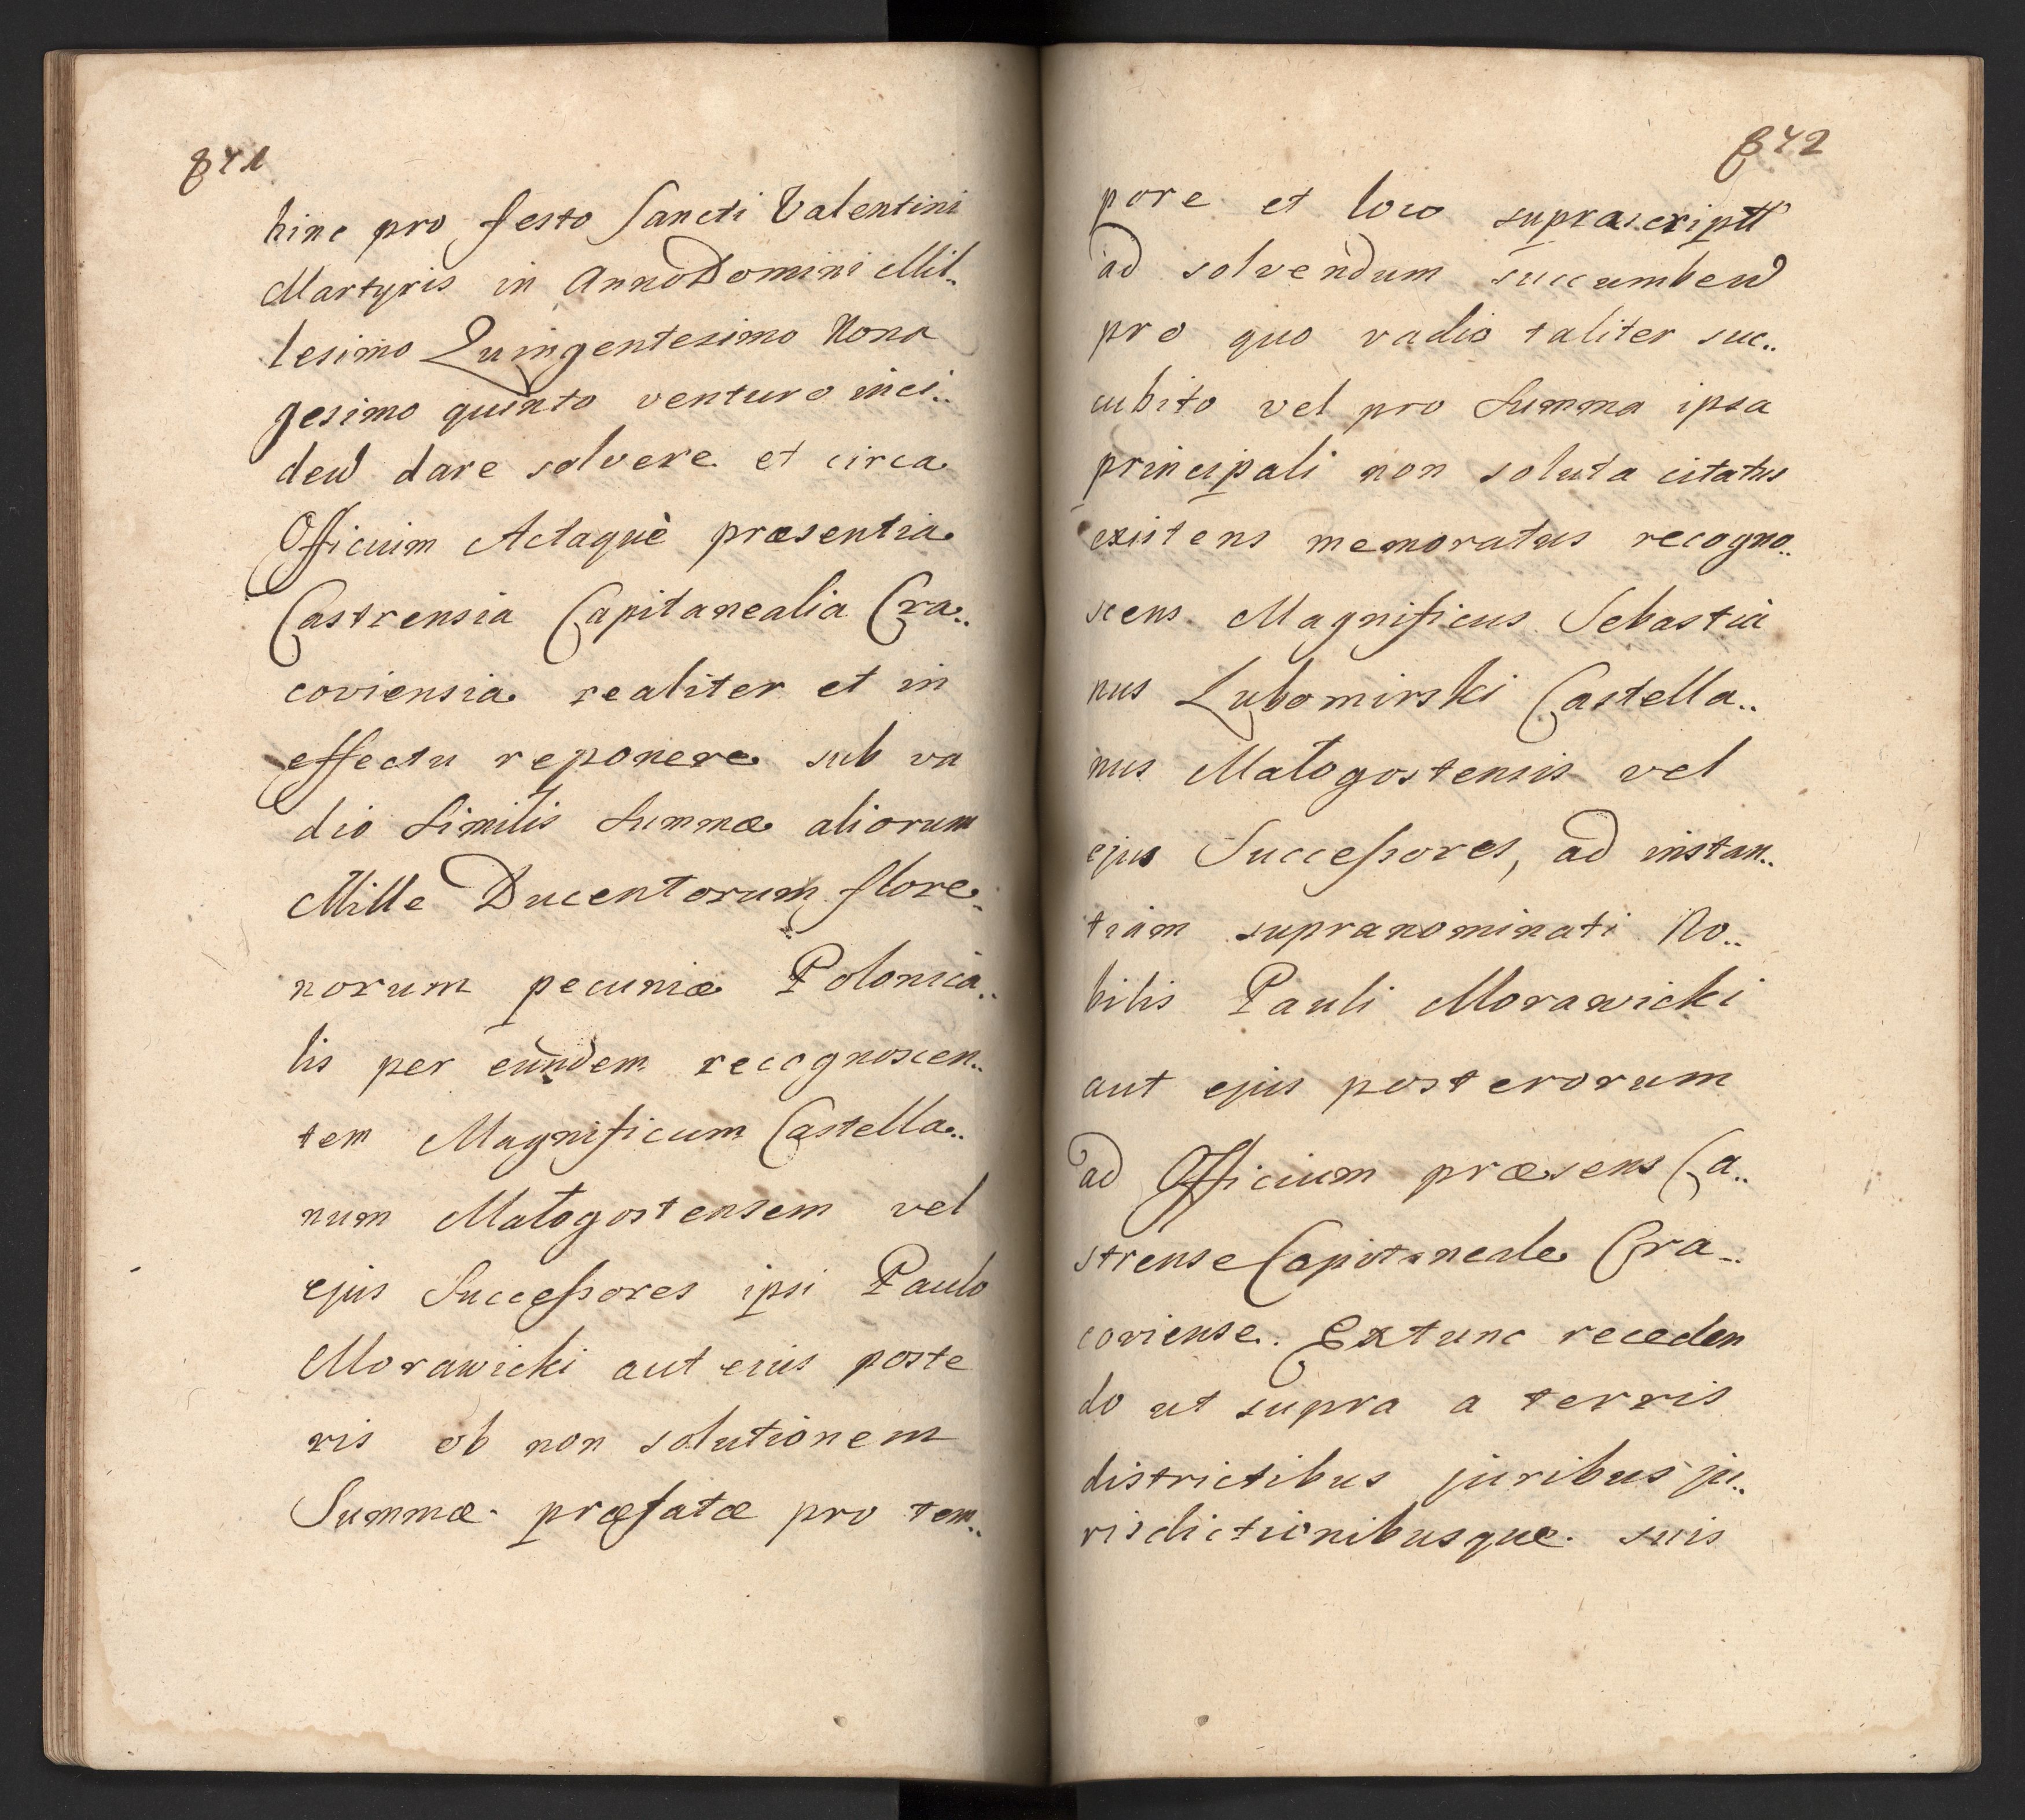 841
hinc pro festo Sancti Valentini
Martyris in Anno Domini Mil..
lesimo Quingentesimo Nona
gesimo quinto venturo inci..
den dare solvere et circa
Officium Actaquè præsentia
Castrensia Capitanealia Cra..
coviensia realiter et in
effectu reponere sub va
dio Similis Summæ aliorum
Mille Ducentorum flore..
norum pecuniæ Polonica..
lis per eundem recognoscen..
tem Magnificum Castella..
num Małogostensem vel
ejus Successores ipsi Paulo
Morawicki aut eius poste
ris ob non solutionem
Summæ præfatæ pro tem..
842
pore et loco suprascriptt
ad solvendum succumben
pro quo vadio taliter suc..
cubito vel pro Summa ipsa
principali non soluta citatus
existens memoratus recogno..
scens Magnificus Sebastia
nus Lubomirski Castella..
nus Małogostensis vel
ejus Successores, ad instan..
tiam supranominati No..
bilis Pauli Morawicki
aut ejus posterorum
ad Officium præsens Ca..
strense Capitaneale Cra..
coviense. Extunc receden
do ut supra a terris
districtibus juribus ju..
risdictionibusque suis